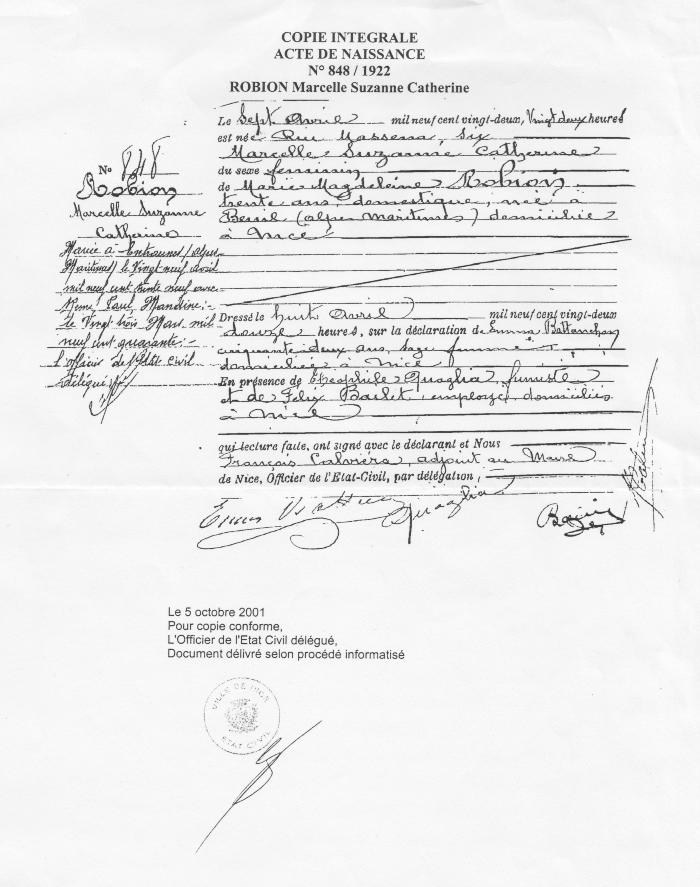 COPIE INTEGRALE
ACTE DE NAISSANCE
N° 848 / 1922
ROBION Marcelle Suzanne Catherine
No 848
Robion
Marcelle Suzanne
Catherine
Mariée à Entraunes (Alpes
Maritimes) le Vingt neuf avril
mil neuf cent trente neuf avec
René Paul Mandine :-
le Vingt trois Mars mil
neuf cent quarante :-
L'officier de l'Etat civil
délégué
Le Sept Avril mil neuf cent vingt-deux, Vingt deux heures
est née Rue Massena, six
Marcelle Suzanne Catherine
du sexe féminin
de Marie Magdeleine Robion
trente ans, domestique, née à
Beuil (alpes maritimes) domiciliée
à Nice
Dressé le huit Avril mil neuf cent vingt-deux
douze heures, sur la déclaration de Emma Battanchon
cinquante deux ans, sage femme
domiciliée à Nice
En présence de Théophile Quaglia, fumiste
et de Félix Bailet employé, domiciliés
à Nice
qui lecture faite, ont signé avec le déclarant et Nous
François Calviéra, adjoint au Maire
de Nice, Officier de l'Etat-Civil, par délégation,
Quaglia
Le 5 octobre 2001
Pour copie conforme,
L'Officier de l'Etat Civil délégué,
Document délivré selon procédé informatisé
VILLE DE NICE
ETAT CIVIL